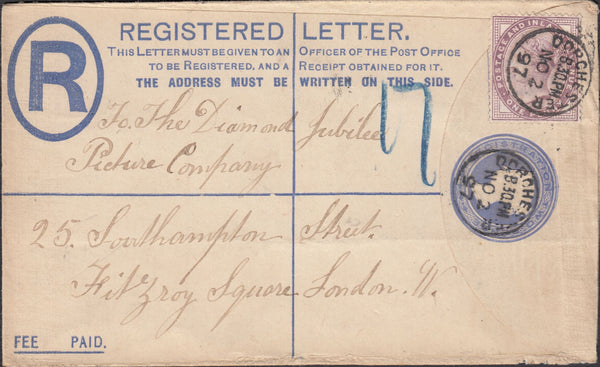 R
REGISTERED LETTER.
THIS LETTER MUST BE GIVEN TO AN OFFICER OF THE POST OFFICE
TO BE REGISTERED, AND A RECEIPT OBTAINED FOR IT.
THE ADDRESS MUST BE WRITTEN ON THIS SIDE.
POSTAGE AND INLAND
DORCHESTER
8.30PM
NO 2
97
To, The Diamond Jubilee
Picture Company
17
REGISTRATION
DORCHESTER
8.30PM
NO 2
97
25. Southampton Street.
Fitzroy Square London. W.
FEE PAID.